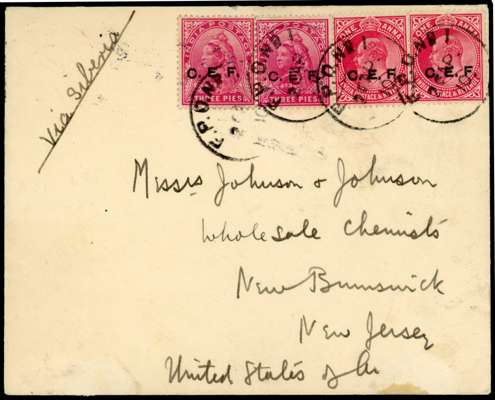 Via Siberia
C. E. F.
THREE PIES
C. E. F.
THREE PIES
ONE ANNA
C. E. F.
ONE ANNA
C. E. F.
F.P.O. No 1
F.P.O. No 1
F.P.O. No 1
F.P.O. No 1
Messrs Johnson & Johnson
Wholesale Chemists
New Brunswick
New Jersey
United States of Am